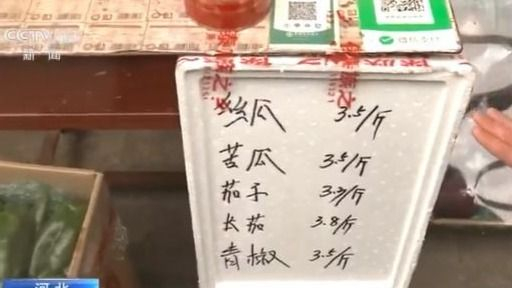 CCTV
新闻
微信支付
丝瓜 3.5/斤
苦瓜 3.5/斤
茄子 3.3/斤
长茄 3.8/斤
青椒 3.5/斤
河北